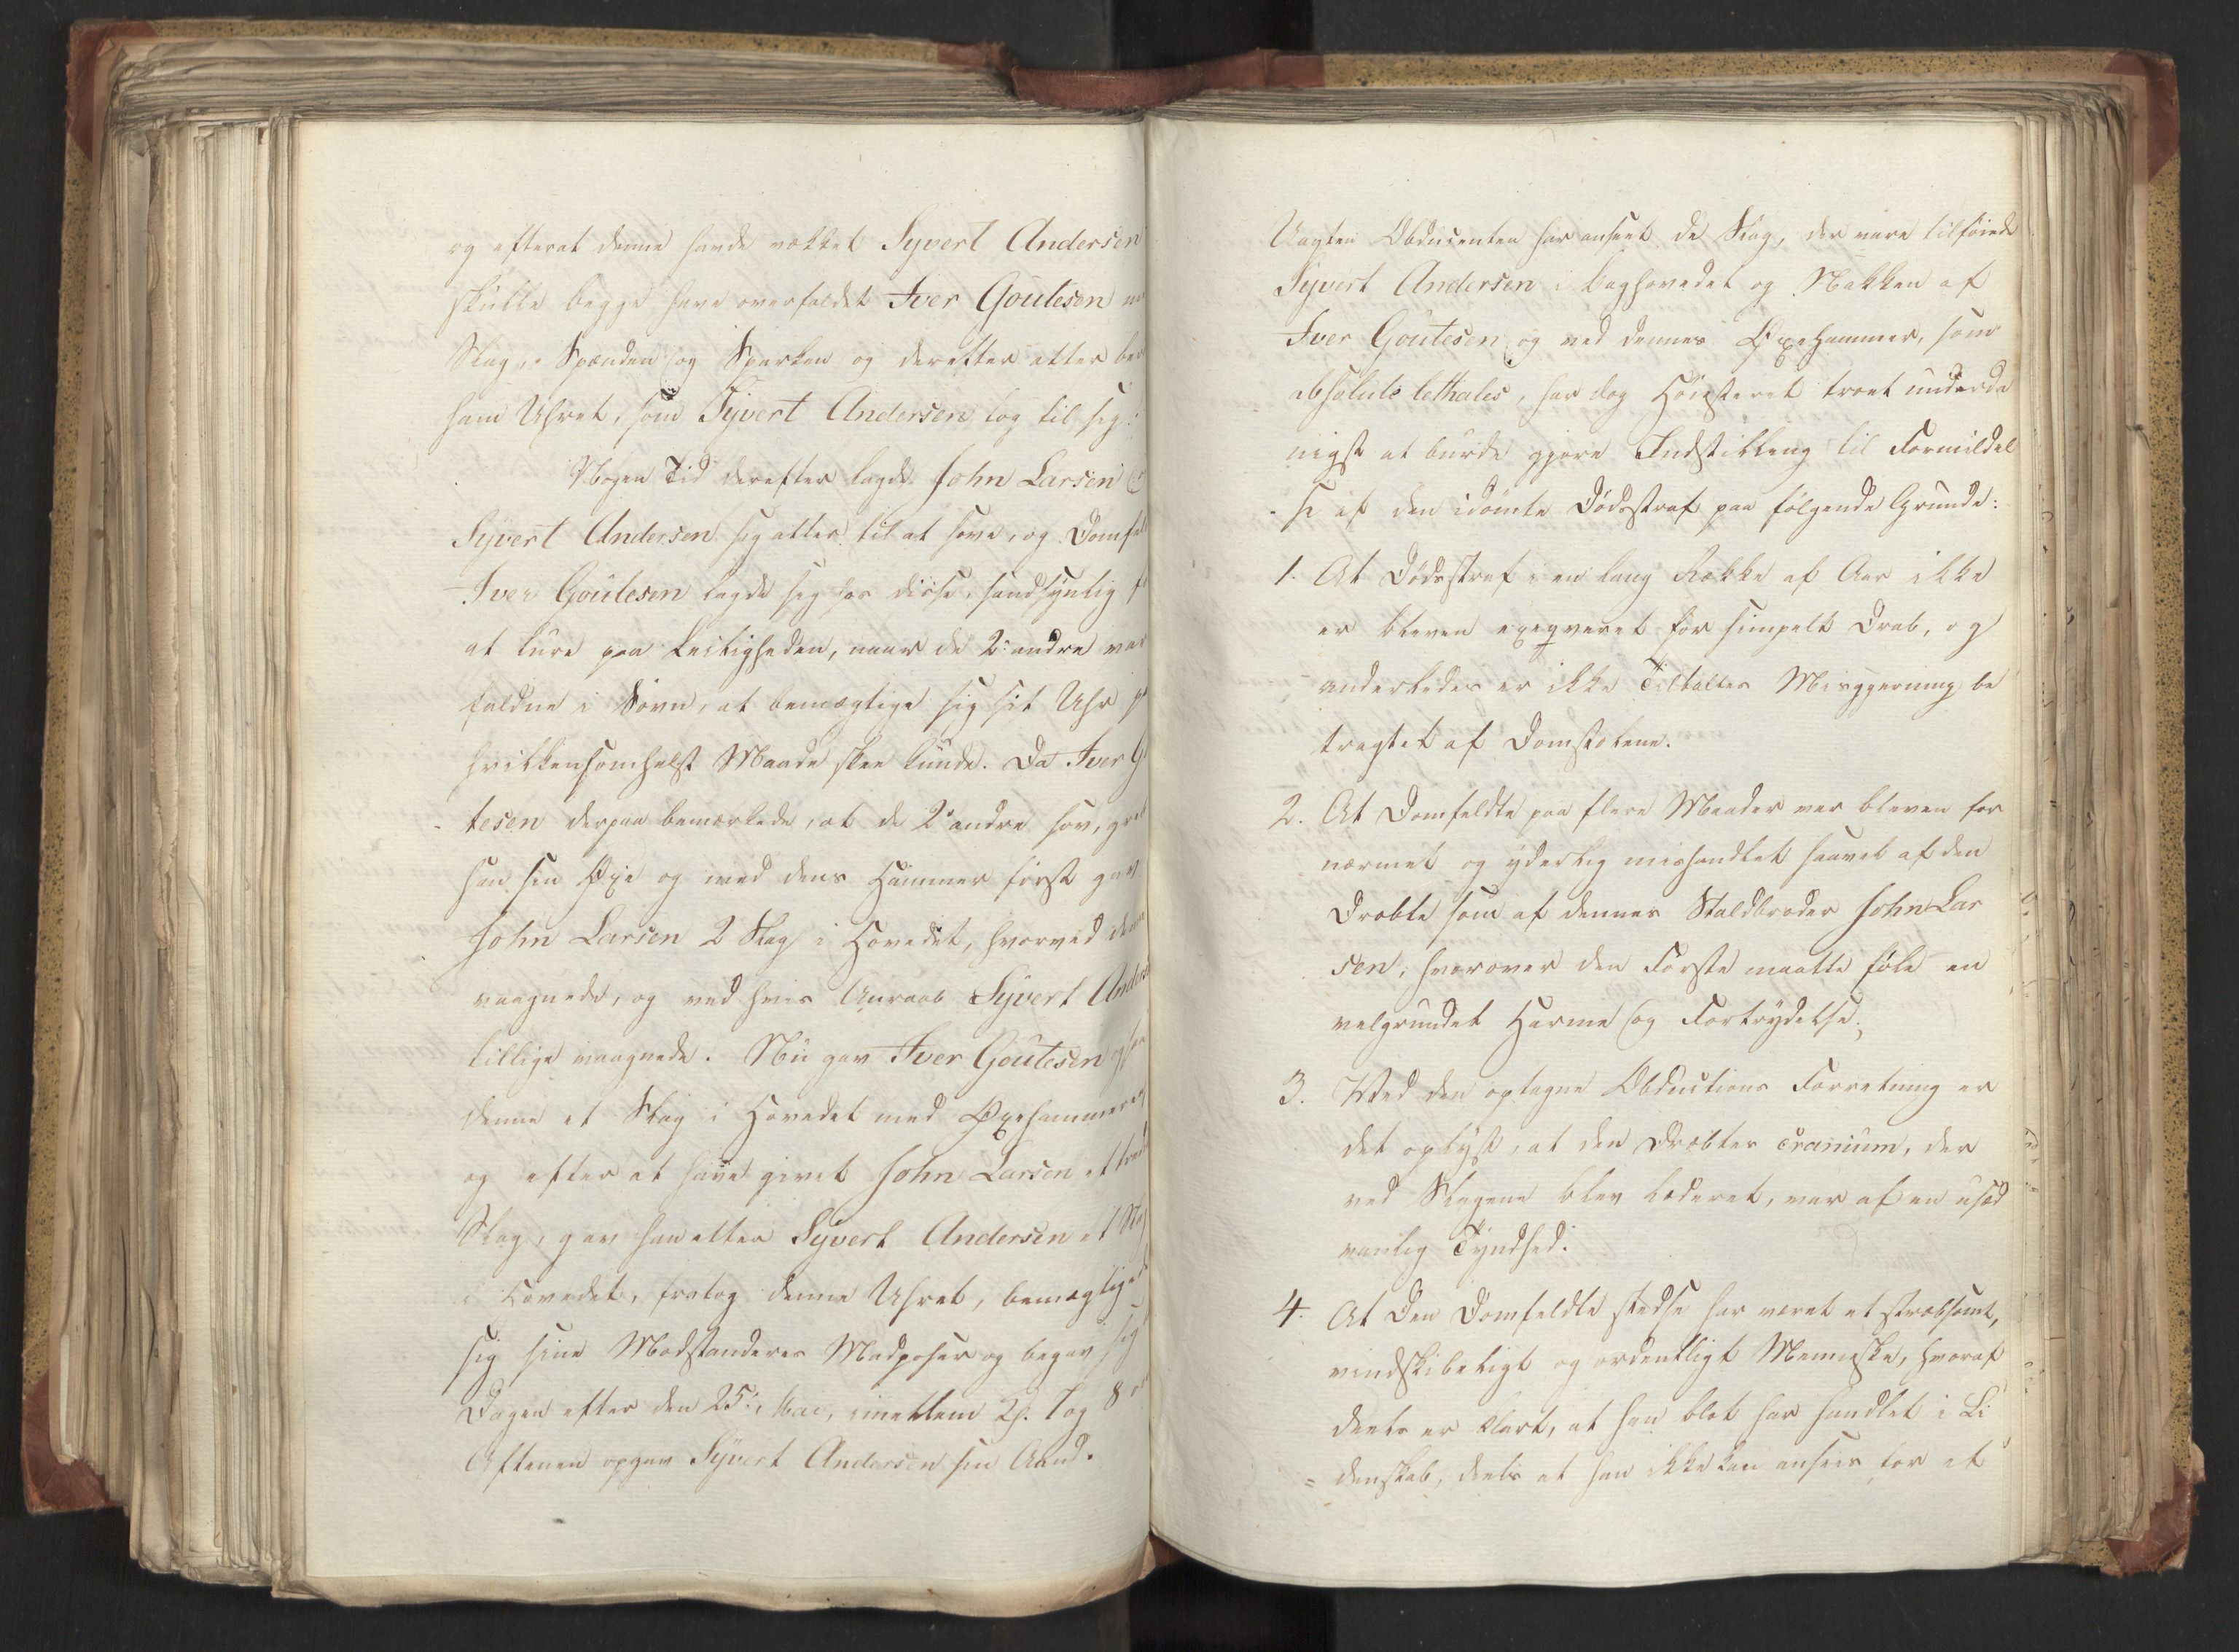 og efterat denne havde vækket Syvert Andersen
skulle begge have overfaldet Iver Goutesen
Slag, Spænden og Sparken og derefter atter
ham Uhret, som Syvert Andersen tog til sig:
Nogen Tid derefter lagde John Larsen
Syvert Andersen sig atter til at sove, og
Iver Goutesen lagde sig hos disse, sandsynlig
at lure paa Leiligheden, naar de 2de andre
faldne i Søvn, at bemægtige sig sit Uhr
hvilkensomhelst Maade skee kunde. Da Iver
tesen derpaa bemærkede, at de 2de andre sov,
han sin Øxe og med dens Hammer først gav
John Larsen 2 Slag i Hovedet, hvorved
vaagnede, og ved hvis Anraab Syvert
tillige vaagnede. Nu gav Iver Goutesen
denne et Slag i Hovedet med Øxehammeren
og efter at have givet John Larsen et
Slag, gav han atter Syvert Andersen et
i Hovedet, fratog denne Uhret,
sig sine Modstanderes Madposer og begav sig
Dagen efter den 25de Mai, imellem Kl. 7 og 8
Aftenen opgav Syvert Andersen sin Aand.
Uagten Obducenten har anseet de Slag, der vare tilføiede
Syvert Andersen i Baghovedet og Nakken af
Iver Goutesen og ved dennes Øxehammer, som
absolute lethales, har dog Høiesteret troet underda
nigst at burde gjøre Indstilling til Formildel
se af den idømte Dødsstraf paa følgende Grunde:
1. At Dødsstraf i en lang Række af Aar ikke
er bleven exeqveret for simpelt Drab, og
anderledes er ikke Tiltaltes Misgjerning be
tragtet af Domstolene.
2. At Domfeldte paa flere Maader var bleven for
nærmet og yderlig mishandlet saavel af den
Dræbte som af dennes Staldbroder John Lar
sen, hvorover den Første maatte føle en
velgrundet Harme og Fortrydelse;
3. Ved den optagne Obductions Forretning er
det oplyst, at den Dræbtes Cranium, der
ved Slagene blev læderet, var af en usæd
vanlig Tyndhed.
4. At Den Domfeldte stedse har været et stræbsomt,
vindskibeligt og ordentligt Menneske, hvoraf
deels er klart, at han blot har handlet i Li
denskab, deels at han ikke kan ansees for et